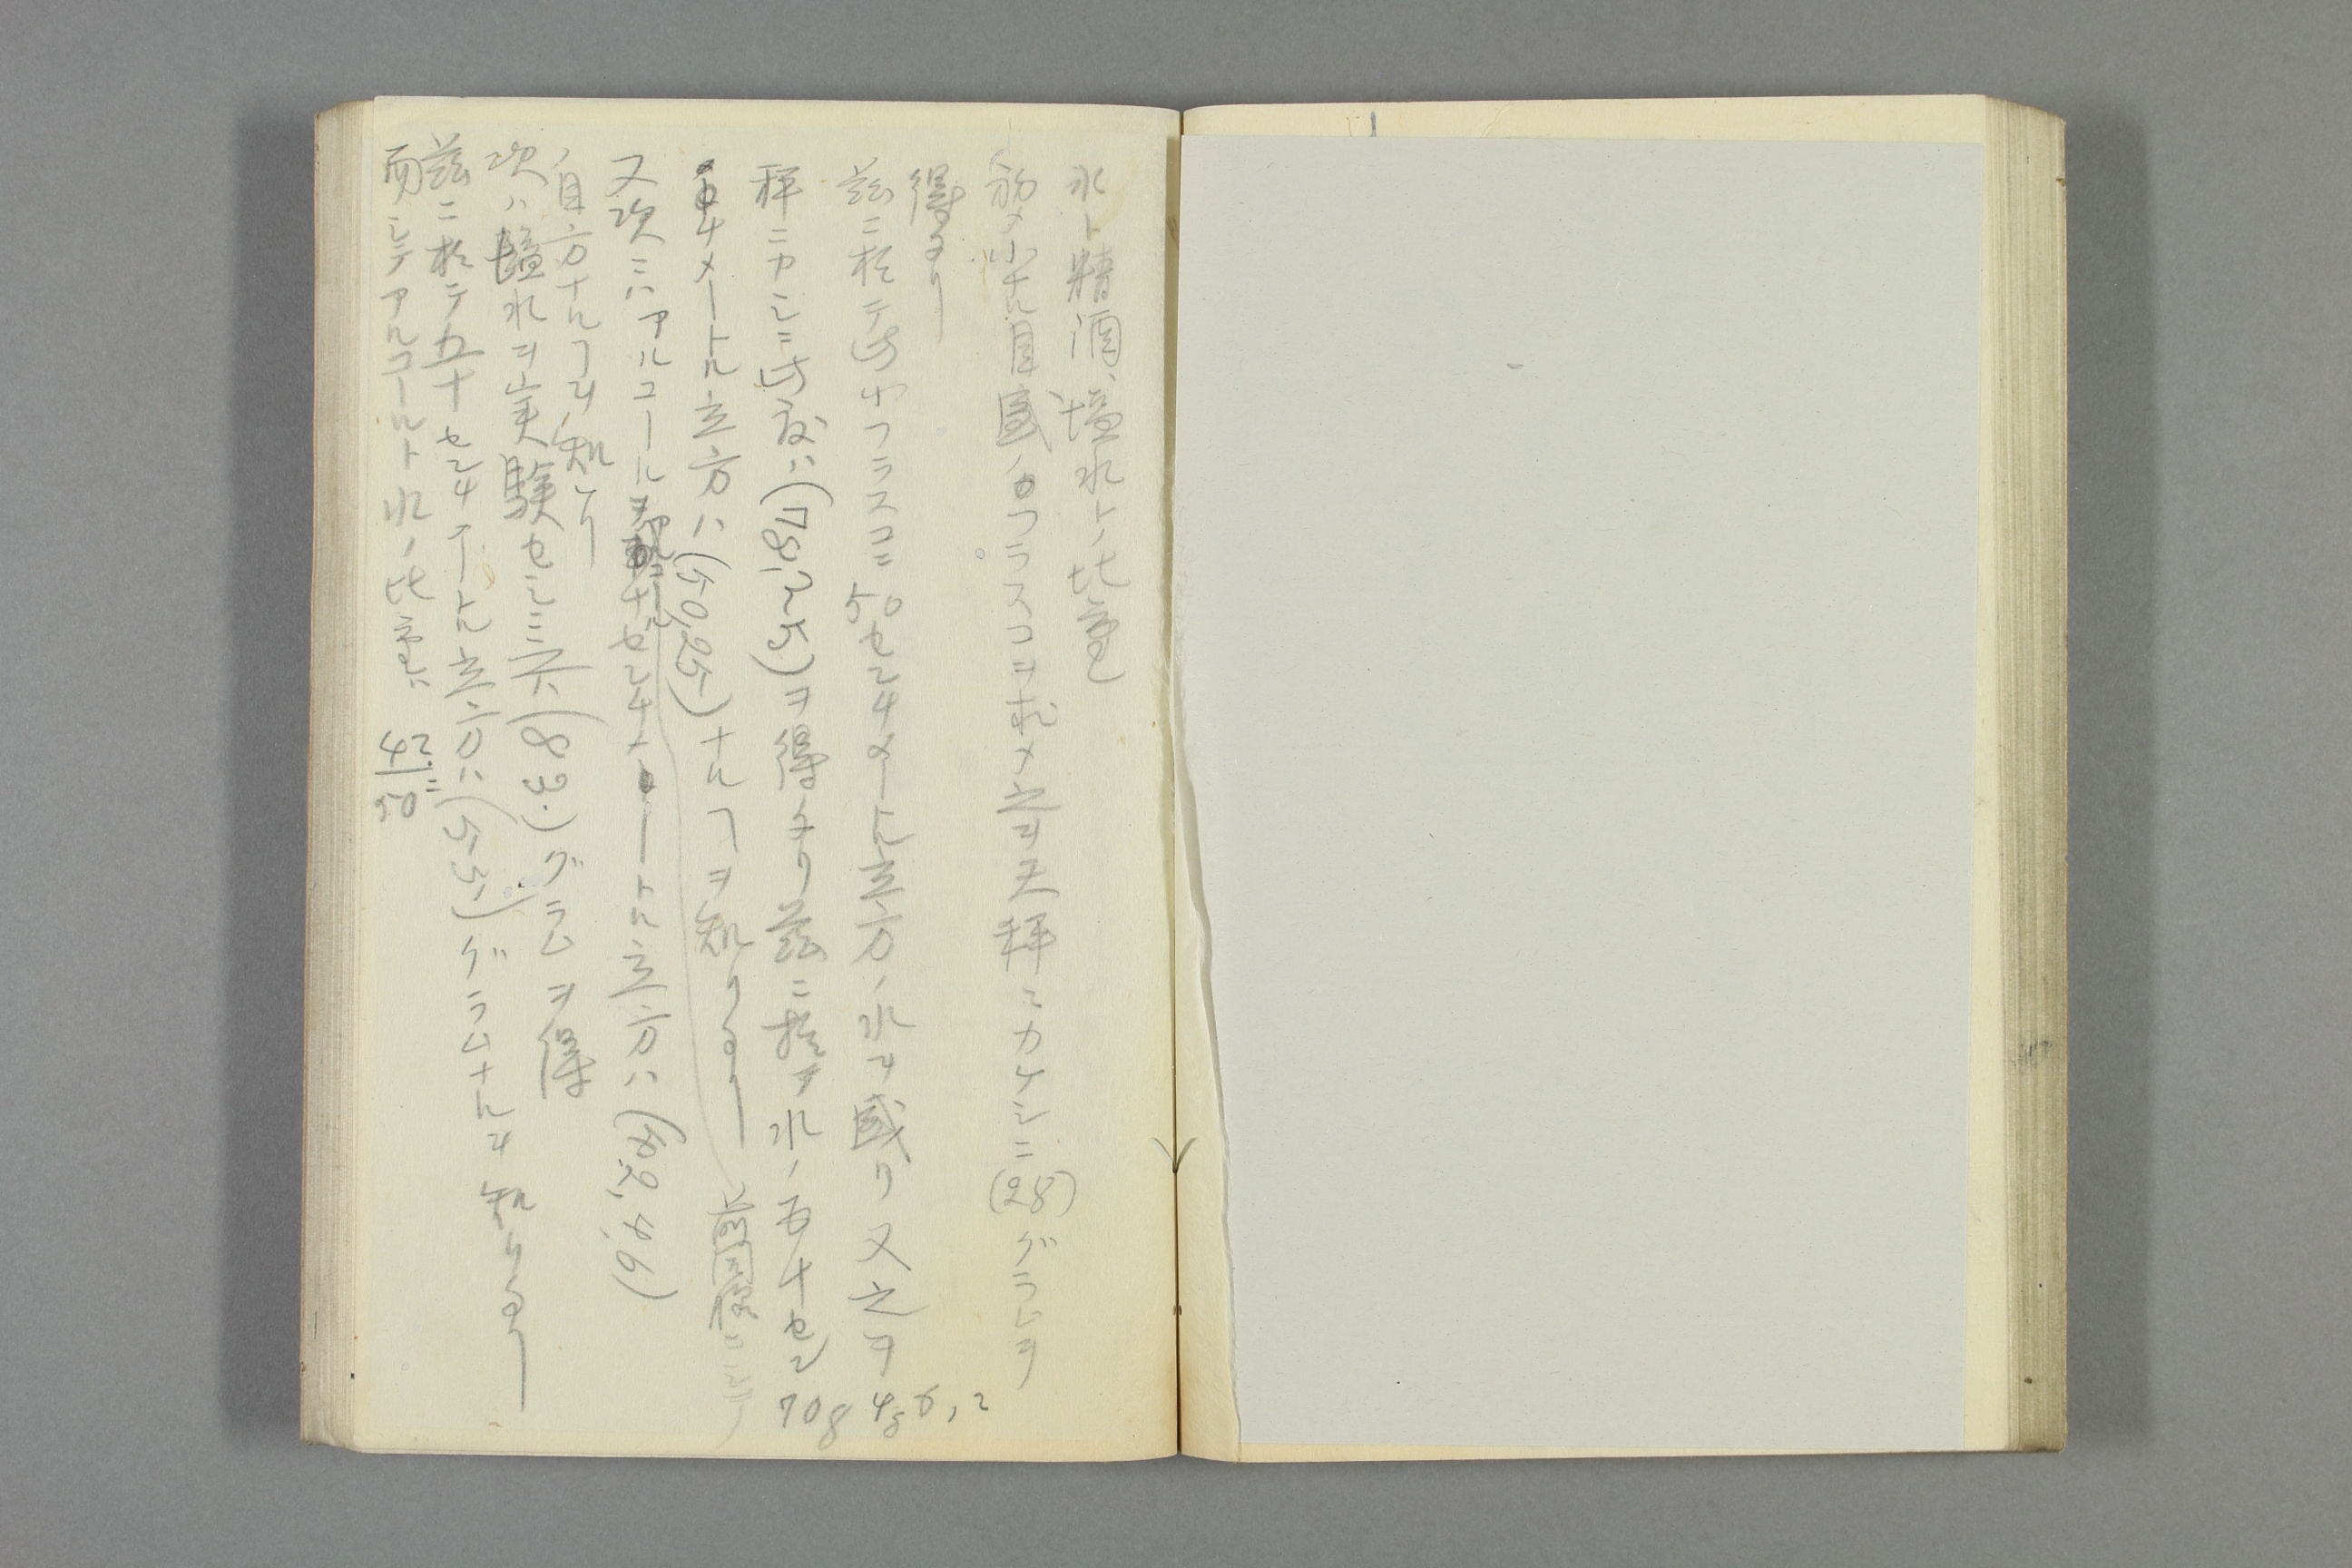 水ト精酒、塩水トノ比重
初メ小ナル目盛ノフラスコヲ求メ之ヲ天秤ニカケシニ(28)グラムヲ
得タリ
茲ニ於テ此ノフラスコニ50センチメートル立方ノ水ヲ盛リ又之ヲ
秤ニカシニ此度ハ(78,25)ヲ得タリ茲ニ於テ水ノ五十セン
チメートル立方ハ(50,25)ナルヿヲ知リタリ
又次ニハアルコールヲ センチメートル立方ハ
目方ナルヿヲ知レリ
次ハ塩水ヲ実験セシニ六(83.)グラムヲ得
茲ニ於テ五十センチメートル立方ハ(55)グラムナルヲ知リタリ
而シテアルコールト水ノ比重ハ 42/50
708 456,2